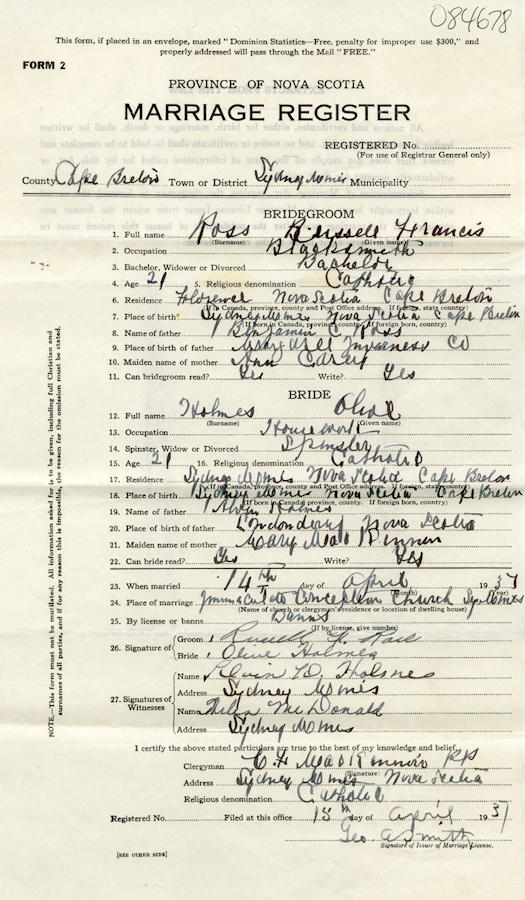 084678
This form, if placed in an envelope, marked "Dominion Statistics—Free, penalty for improper use $300," and
properly addressed will pass through the Mail "FREE."
FORM 2
PROVINCE OF NOVA SCOTIA
MARRIAGE REGISTER
REGISTERED No.
(For use of Registrar General only)
County Cape Breton Town or District Sydney Mines Municipality
BRIDEGROOM
1. Full name Ross Russell Francis
(Surname) (Given name)
2. Occupation Blacksmith
3. Bachelor, Widower or Divorced Bachelor
4. Age 21 5. Religious denomination Catholic
6. Residence Florence Nova Scotia Cape Breton
(If in Canada, province, county and Post Office address. If foreign, state, country)
7. Place of birth Sydney Mines Nova Scotia Cape Breton
(If born in Canada, province, county. If foreign born, country)
8. Name of father Benjamin C. Ross
9. Place of birth of father Inverness Co
10. Maiden name of mother Ann Carey
11. Can bridegroom read? Yes Write? Yes
BRIDE
12. Full name Holmes Olive
(Surname) (Given name)
13. Occupation Housework
14. Spinster, Widow or Divorced Spinster
15. Age 21 16. Religious denomination Catholic
17. Residence Sydney Mines Nova Scotia Cape Breton
(If in Canada, province, county and Post Office address. If foreign, state, country)
18. Place of birth Sydney Mines Nova Scotia Cape Breton
(If born in Canada, province, county. If foreign born, country)
19. Name of father Holmes
20. Place of birth of father Londonderry Nova Scotia
21. Maiden name of mother Mary MacKinnon
22. Can bride read? Yes Write? Yes
23. When married 14th day of April 1937
(Month) (Year)
24. Place of marriage Immaculate Conception Church Syd Mines
(Name of church or clergyman's residence or location of dwelling house)
25. By license or banns Banns
(If by license, give number)
26. Signature of
Groom Russell F. Ross
Bride Olive Holmes
27. Signatures of Witnesses
Name Holmes
Address Sydney Mines
Name McDonald
Address Sydney Mines
I certify the above stated particulars are true to the best of my knowledge and belief.
Clergyman MacKinnon P.P.
(Signature)
Address Sydney Mines Nova Scotia
Religious denomination Catholic
Registered No. Filed at this office 15th day of April 1937
Geo. A Smith
Signature of Issuer of Marriage License.
[SEE OTHER SIDE]
NOTE.—This form must not be mutilated. All information asked for is to be given, including full Christian and
surnames of all parties, and if for any reason this is impossible, the reason for the omission must be stated.